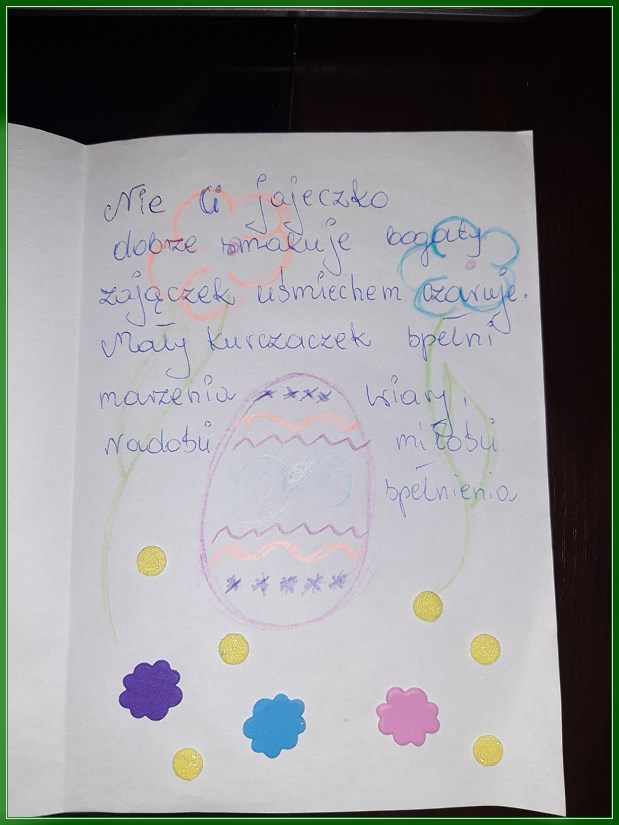 Nie Ci jajeczko
dobrze smakuje bogaty
zajączek uśmiechem czaruje.
Mały kurczaczek spełni
marzenia wiary,
radości miłości
spełnienia